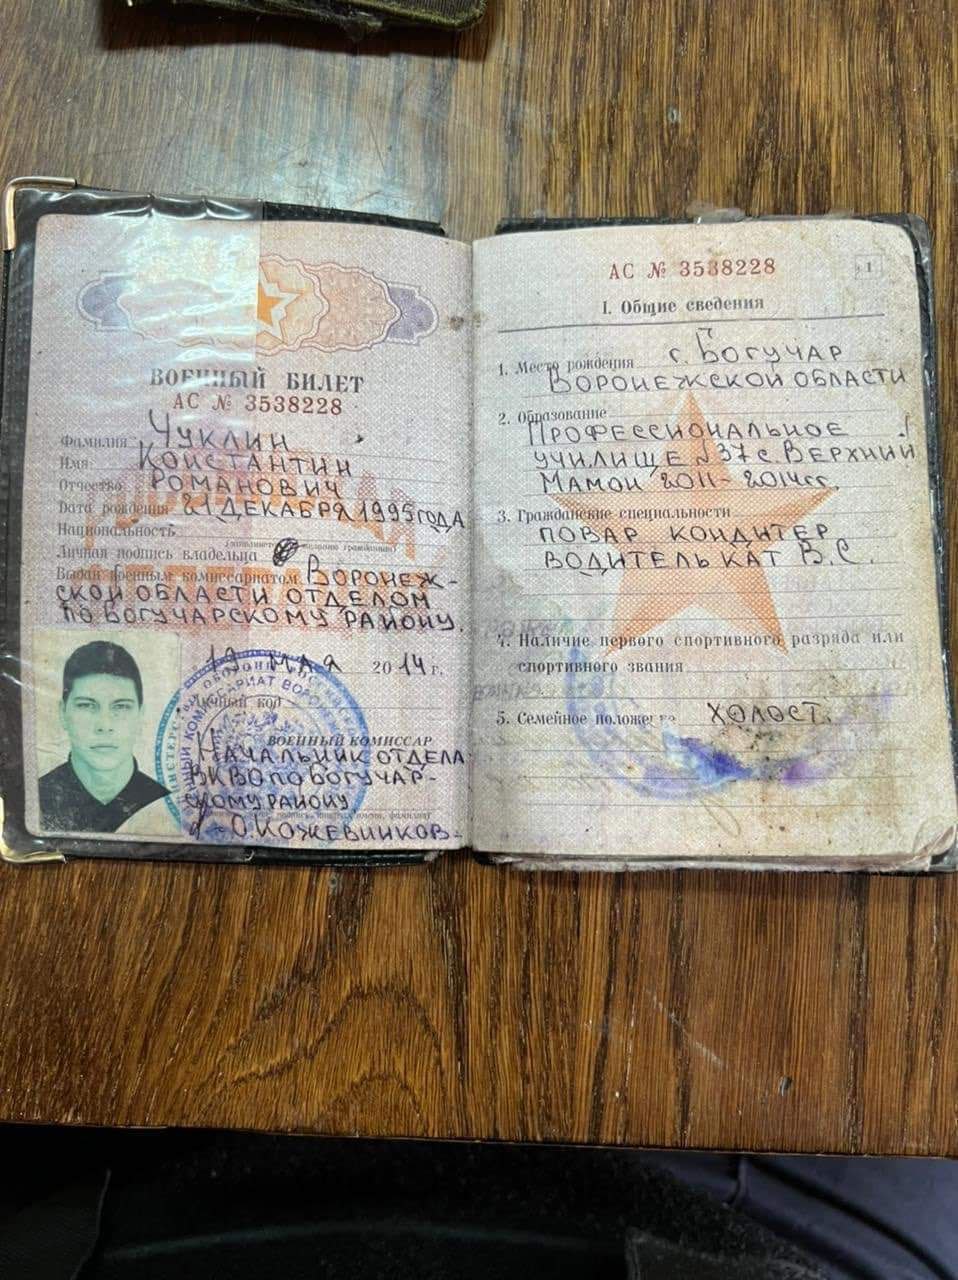 ВОЕННЫЙ БИЛЕТ
АС № 3538228
Фамилия ЧУКЛИН
Имя КОНСТАНТИН
Отчество РОМАНОВИЧ
Дата рождения 21 ДЕКАБРЯ 1995 ГОДА
Национальность
Личная подпись владельца
Выдан военным комиссариатом ВОРОНЕЖ-
СКОЙ ОБЛАСТИ ОТДЕЛОМ
ПО БОГУЧАРСКОМУ РАЙОНУ.
19 МАЯ 2014 г.
Личный код
ВОЕННЫЙ КОМИССАР
НАЧАЛЬНИК ОТДЕЛА
ВКВО ПО БОГУЧАР-
СКОМУ РАЙОНУ
О. КОЖЕВНИКОВ
АС № 3538228
1
I. Общие сведения
1. Место рождения г. БОГУЧАР
ВОРОНЕЖСКОЙ ОБЛАСТИ
2. Образование
ПРОФЕССИОНАЛЬНОЕ
УЧИЛИЩЕ №37 с. ВЕРХНИЙ
МАМОН 2011-2014гг.
3. Гражданские специальности
ПОВАР КОНДИТЕР
ВОДИТЕЛЬ КАТ В.С.
4. Наличие первого спортивного разряда или
спортивного звания
5. Семейное положение ХОЛОСТ.